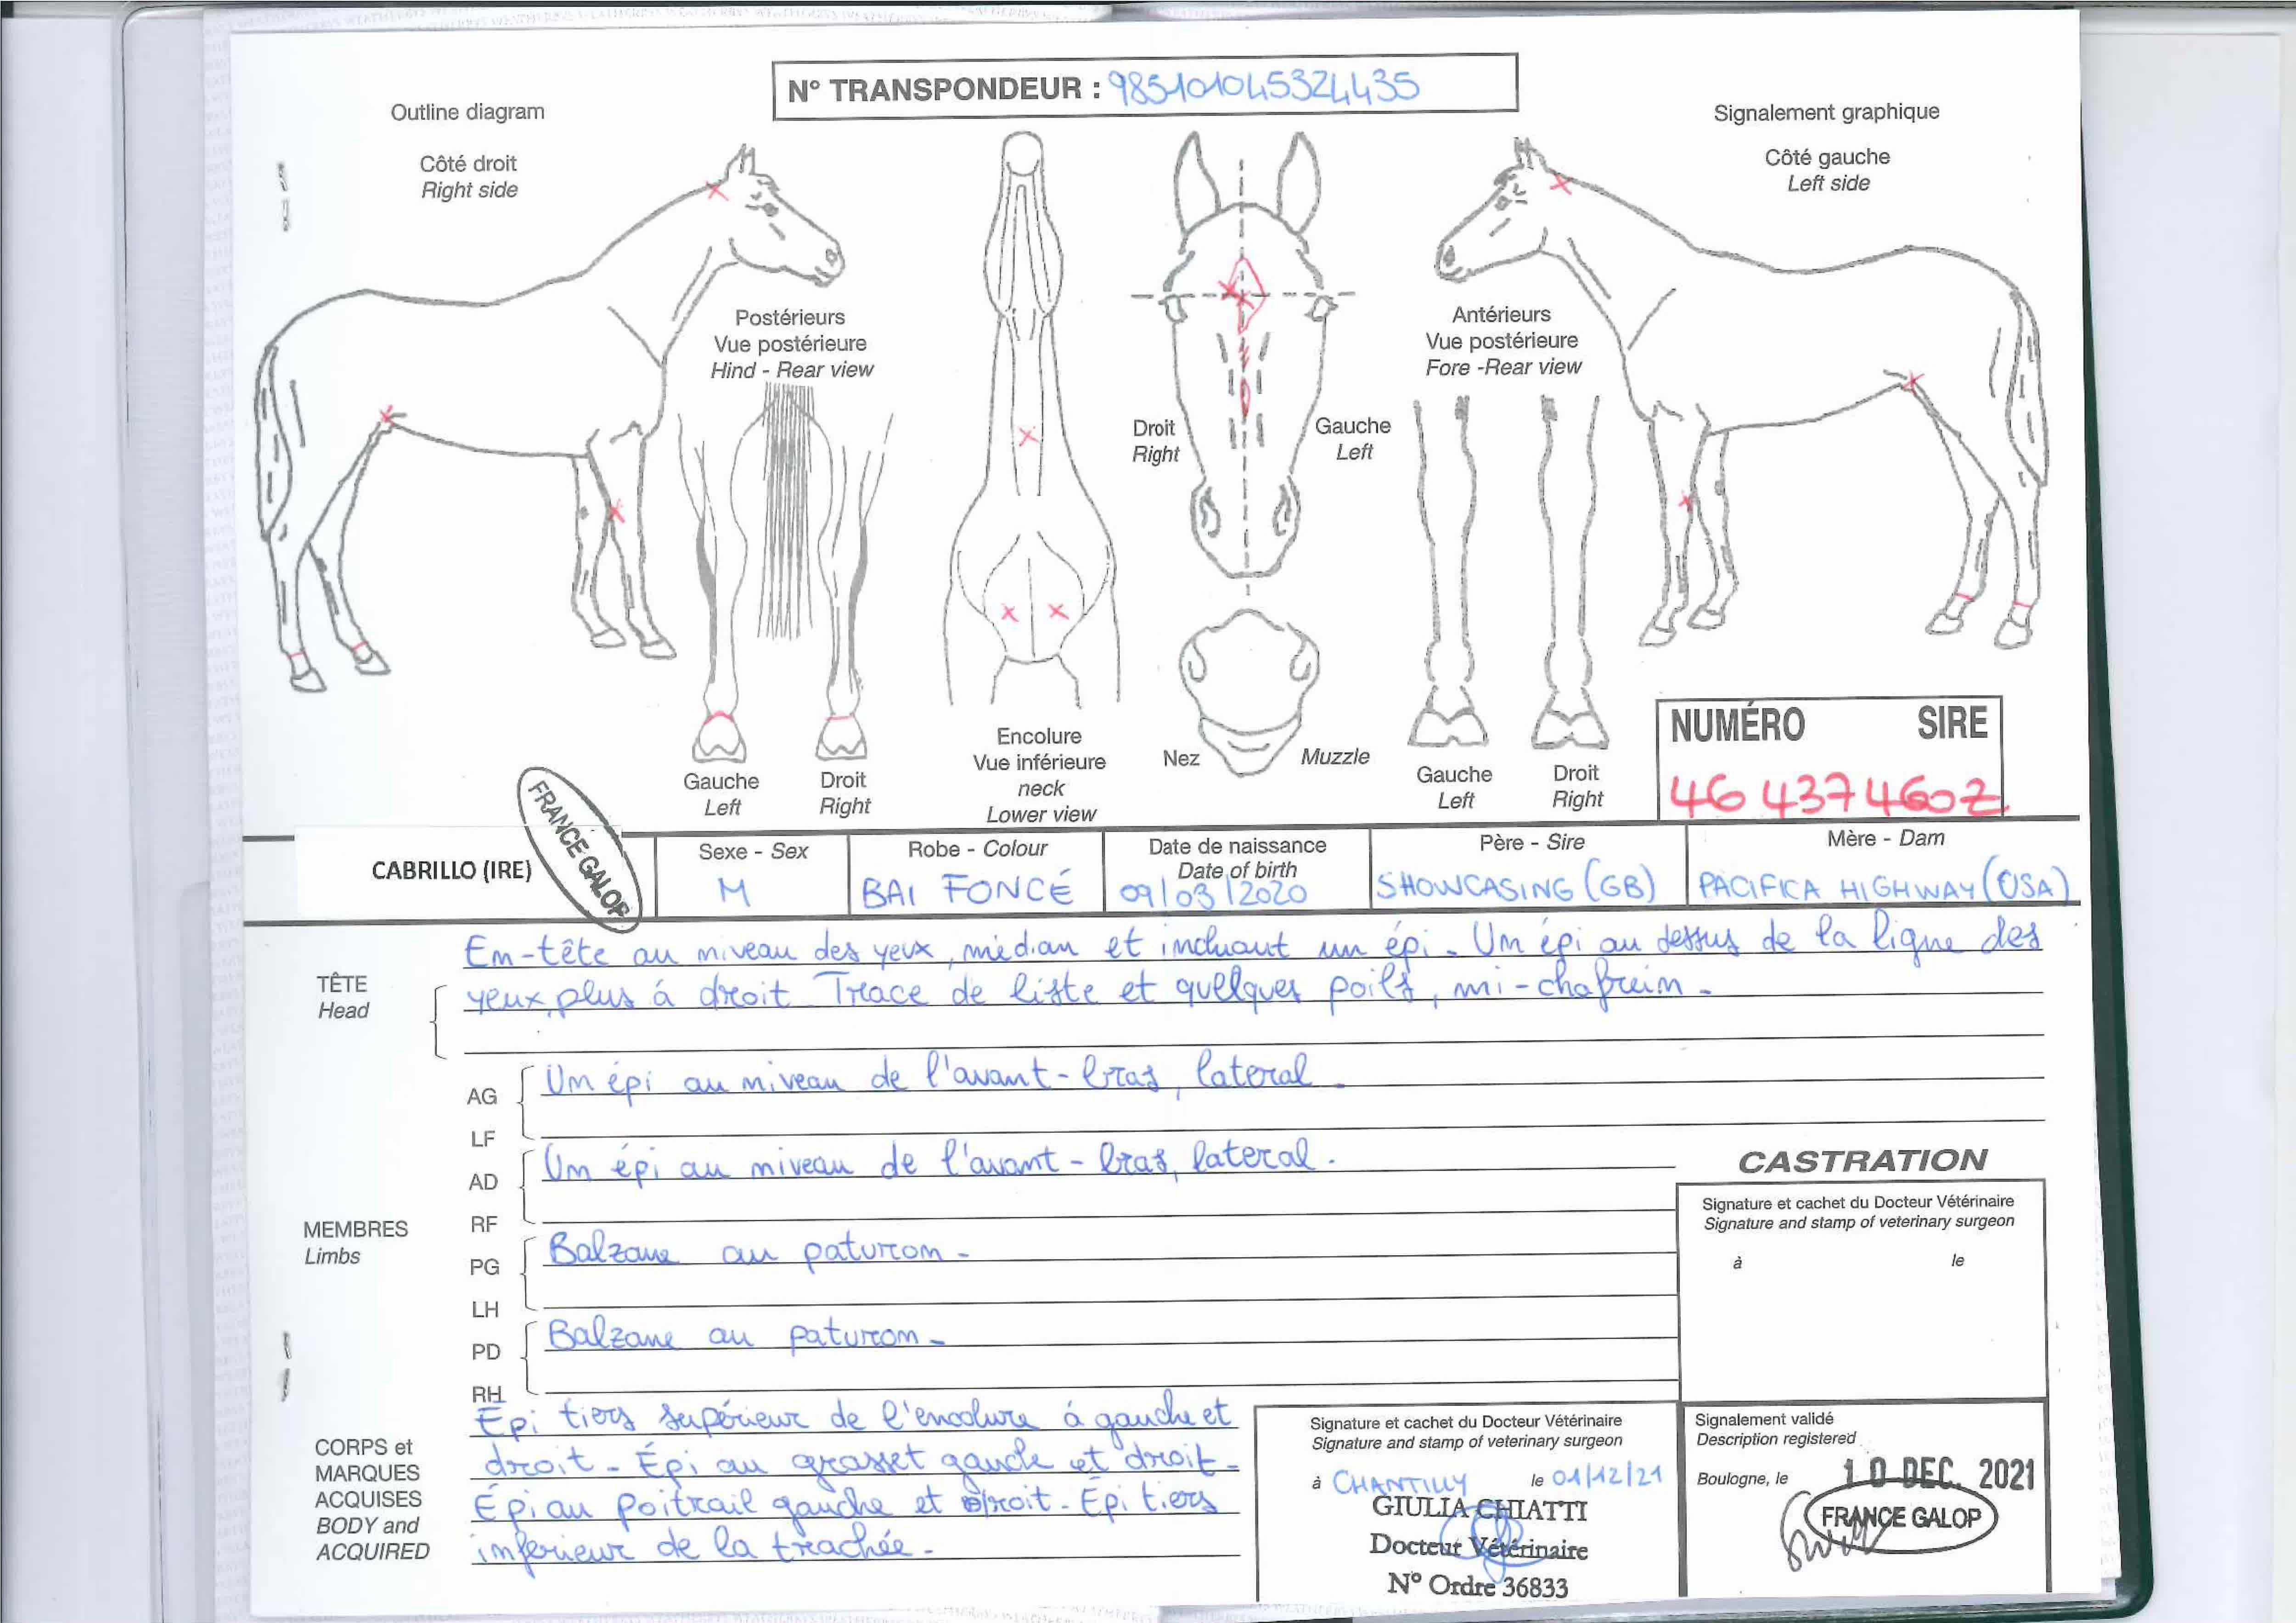 N° TRANSPONDEUR : 985101045324435
Outline diagram
Signalement graphique
Côté droit
Right side
Côté gauche
Left side
Postérieurs
Vue postérieure
Hind - Rear view
Antérieurs
Vue postérieure
Fore -Rear view
Droit
Right
Gauche
Left
Encolure
Vue inférieure
neck
Lower view
Nez
Muzzle
Gauche
Left
Droit
Right
Gauche
Left
Droit
Right
NUMÉRO SIRE
46 437 460Z
FRANCE GALOP
CABRILLO (IRE)
Sexe - Sex
M
Robe - Colour
BAI FONCÉ
Date de naissance
Date of birth
09/03/2020
Père - Sire
SHOWCASING (GB)
Mère - Dam
PACIFICA HIGHWAY (USA)
TÊTE
Head
Em-tête au niveau des yeux, médian et incluant un épi - Um épi au dessus de la ligne des
yeux, plus à droit. Trace de liste et quelques poils, mi-chafreim -
MEMBRES
Limbs
AG
LF
Um épi au niveau de l'avant-bras, lateral.
AD
RF
Um épi au niveau de l'avant-bras, lateral.
PG
LH
Balzane au paturom -
PD
RH
Balzane au paturom -
CASTRATION
Signature et cachet du Docteur Vétérinaire
Signature and stamp of veterinary surgeon
à le
CORPS et
MARQUES
ACQUISES
BODY and
ACQUIRED
Épi tiers supérieur de l'encolure à gauche et
droit - Épi au grasset gauche et droit -
Épi au poitrail gauche et droit - Epi tiers
inferieur de la trachée -
Signature et cachet du Docteur Vétérinaire
Signature and stamp of veterinary surgeon
à CHANTILLY le 01/12/21
GIULIA CHIATTI
Docteur Vétérinaire
N° Ordre 36833
Signalement validé
Description registered
Boulogne, le 10 DEC. 2021
FRANCE GALOP